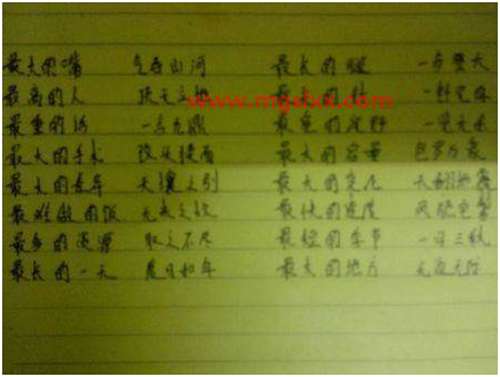 最大的嘴 气吞山河 最长的腿 一步登天
最高的人 顶天立地 最 的
最重的话 一言九鼎 最 的视野 一览无余
最大的手术 改头换面 最大的容量 包罗万象
最大的差异 天壤之别 最大的变化 天翻地覆
最难做的饭 无米之炊 最快的速度 风驰电掣
最多的资源 取之不尽 最短的季节 一日三秋
最长的一天 度日如年 最大的地方 无边无际